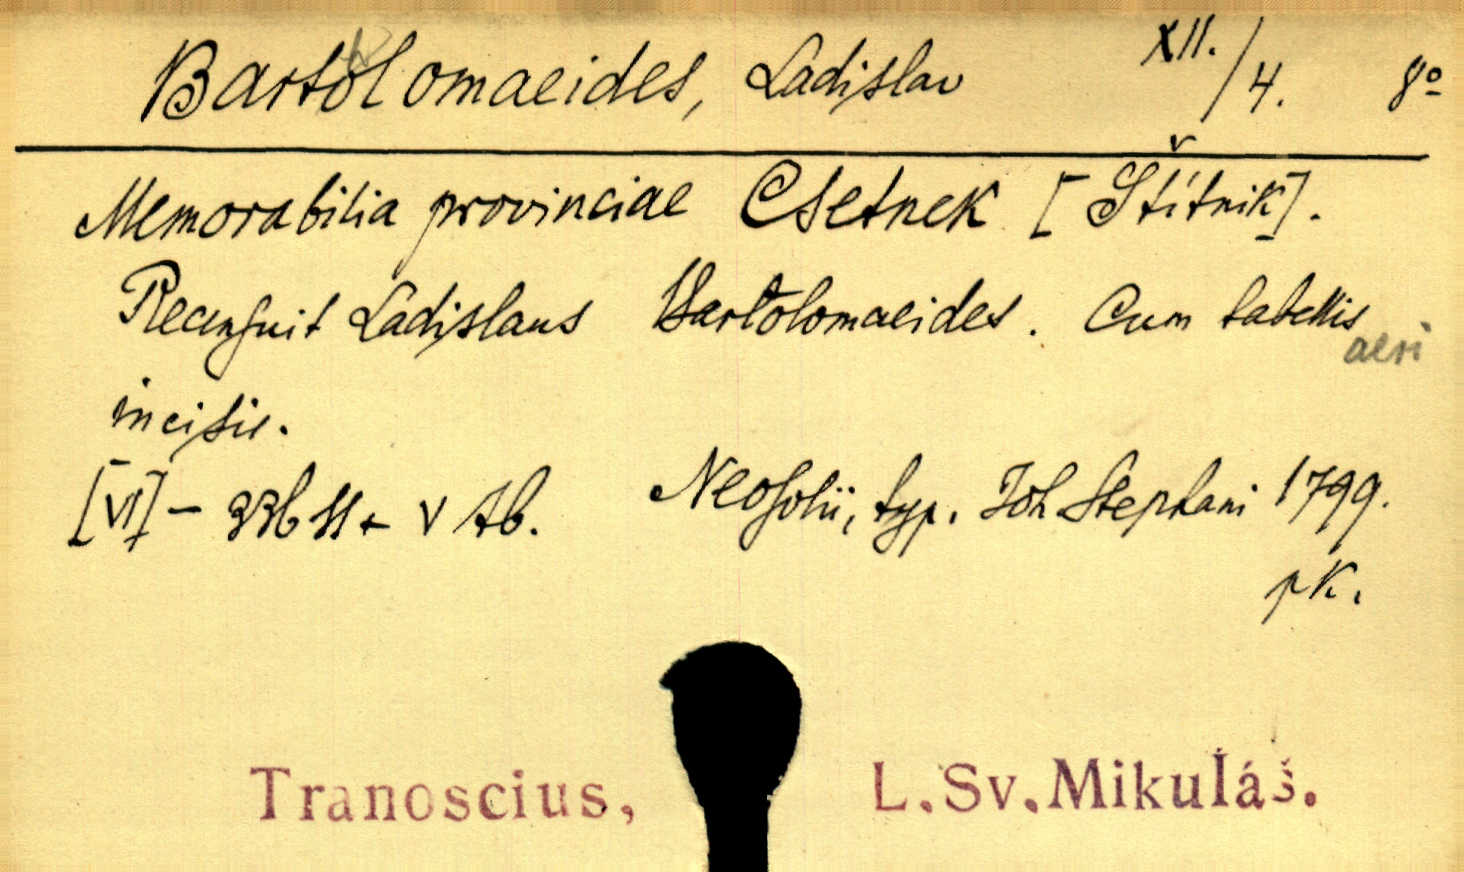 Bartolomaeides, Ladislav XII./4. 8º
Memorabilia provinciae Csetnek [Štítnik].
Recensuit Ladislaus Bartolomaeides. Cum tabellis
aeri
incisis.
[VI] - 336 s + V tb. Neosolii, typ. Joh Stephani 1799.
pk.
Tranoscius, L. Sv. Mikuláš.